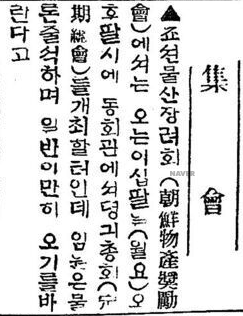 集會
▲죠션물산장려회(朝鮮物産奬勵
會)에셔는 오는이십팔일(월요)오
후팔시에 동회관에셔뎡긔총회(뎡
期總會)를개최할터인데 임원은물
론출석하며 일반이만히 오기를바
란다고
NAVER